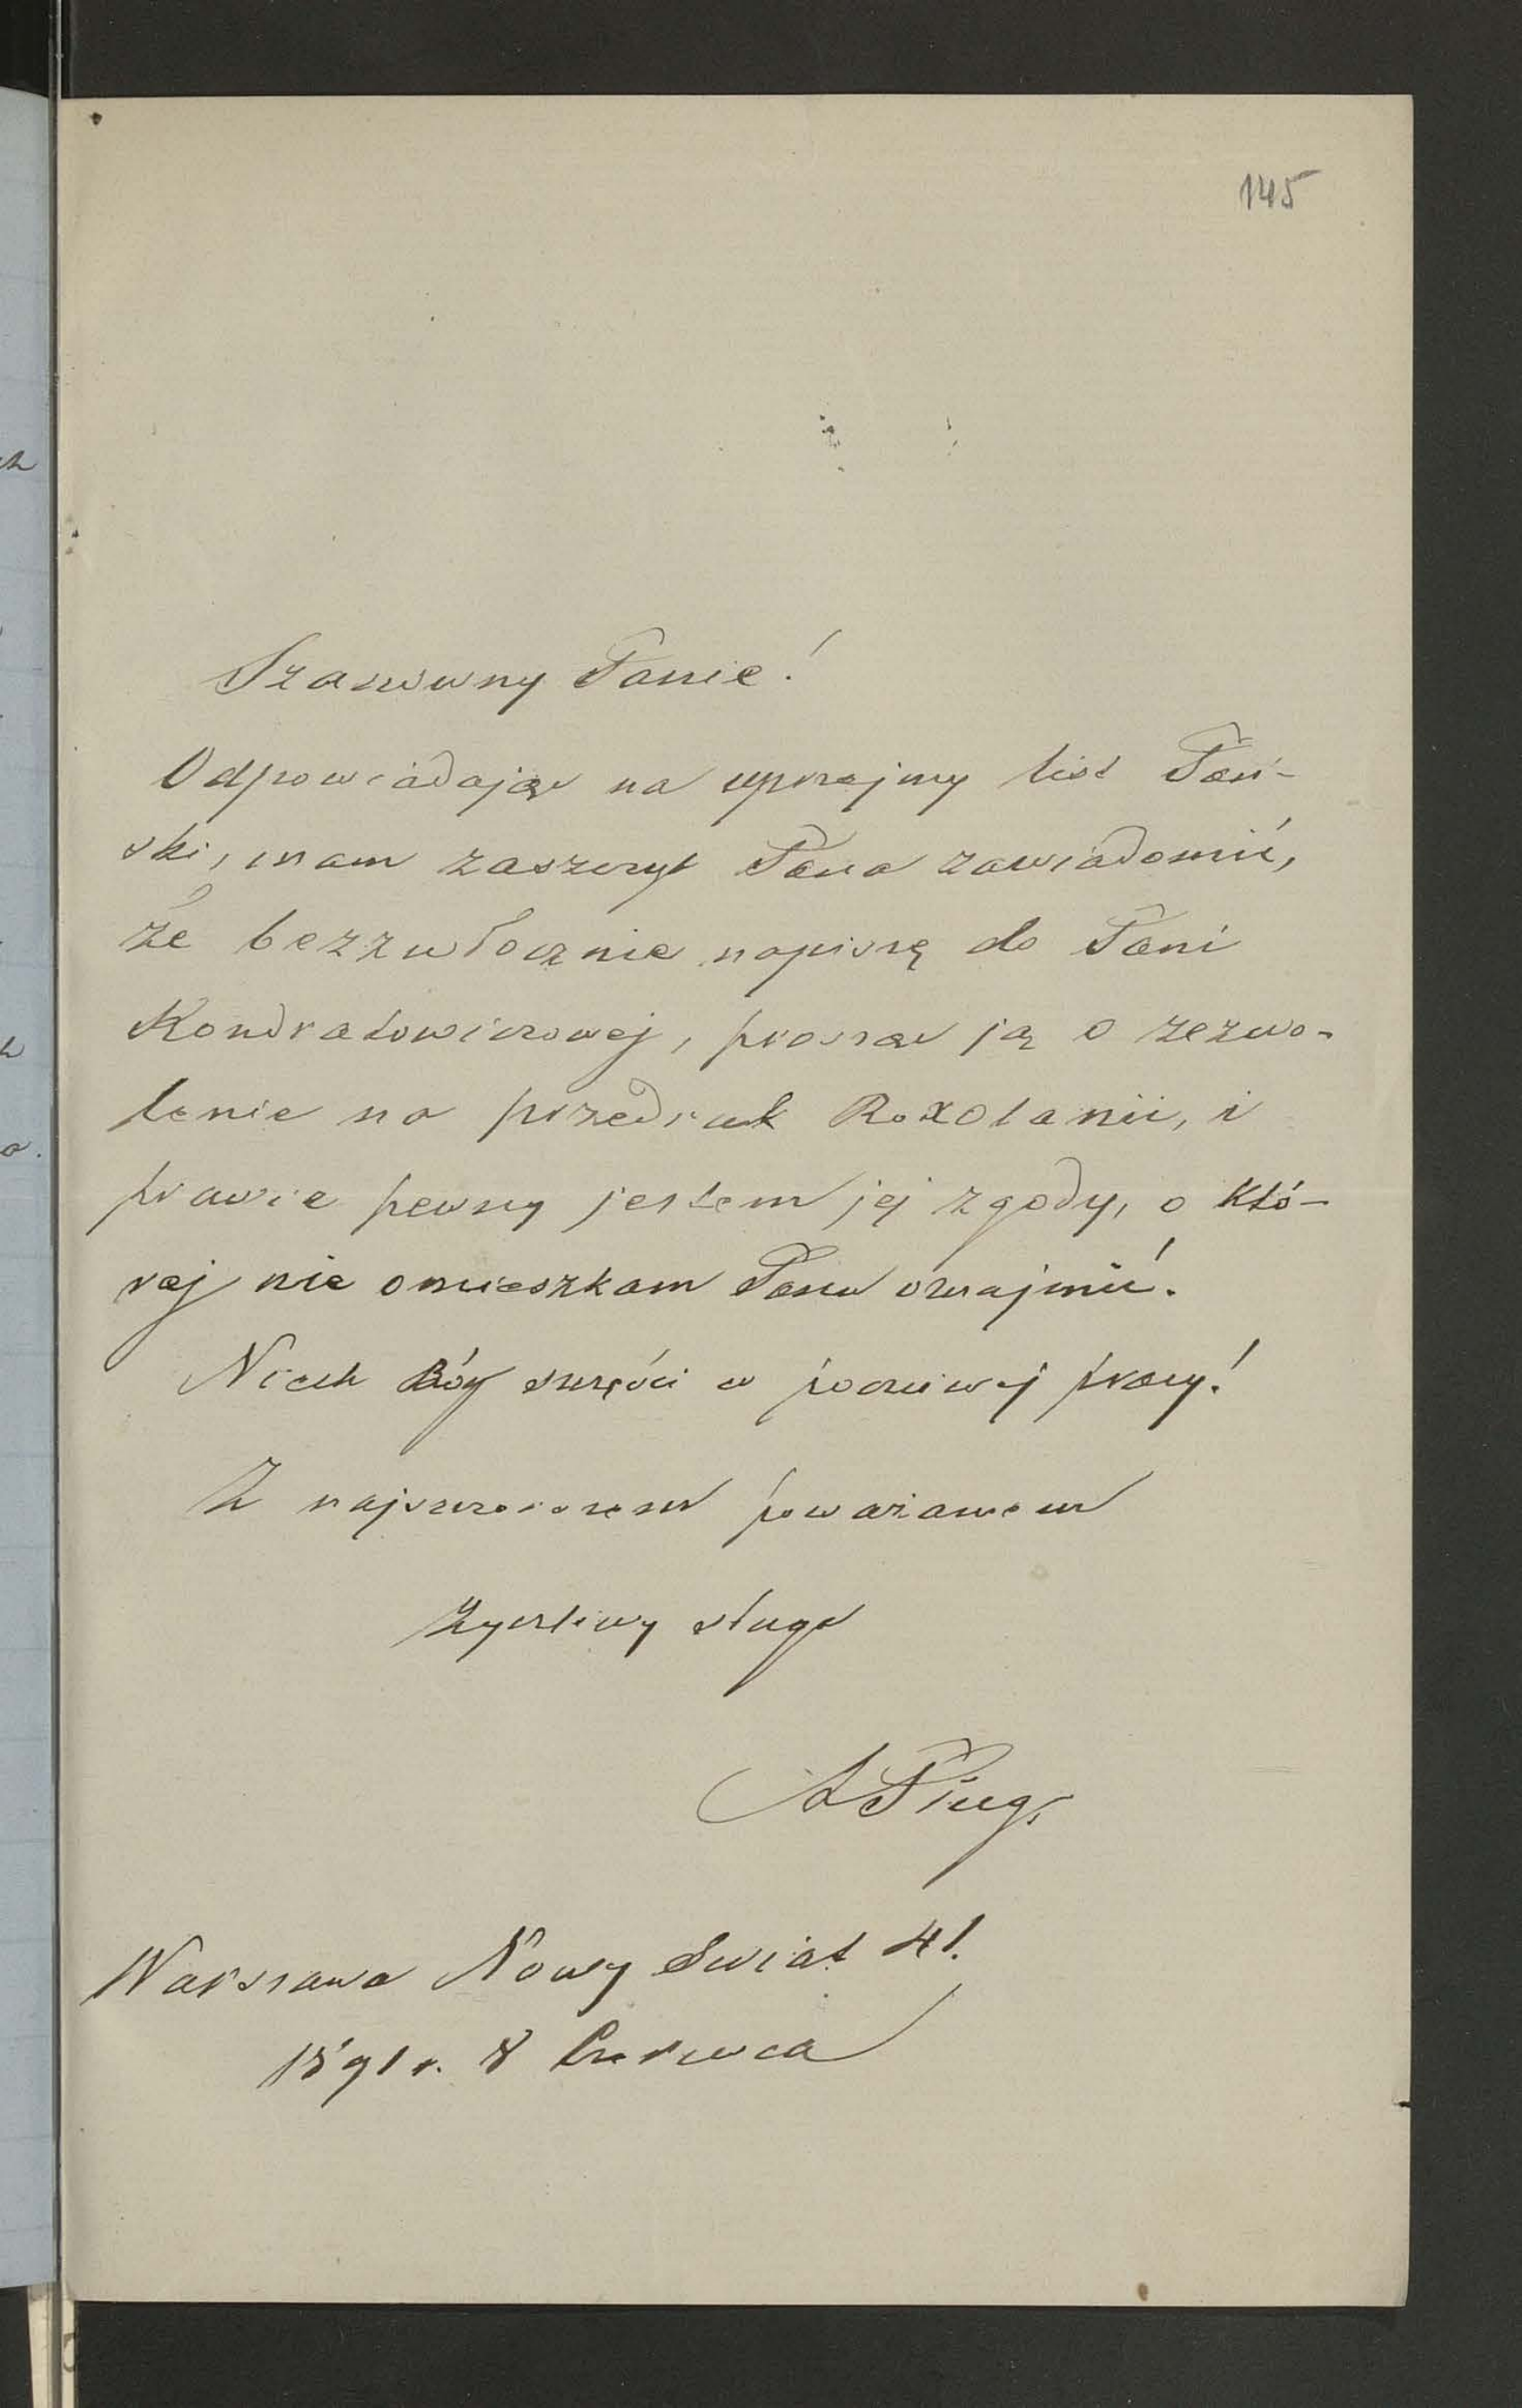 145
Szanowny Panie!
Odpowiadając na uprzejmy list Pań-
ski, mam zaszczyt Pana zawiadomić,
że bezzwłocznie napiszę do Pani
Kondratowiczowej, prosząc ją o zezwo-
lenie na przedruk Roxolanii, i
prawie pewny jestem jej zgody, o któ-
rej nie omieszkam Panu oznajmić.
Niech Bóg szczęści w poczciwej pracy!
Z najszczerszem poważaniem
życzliwy sługa
A Pług.
Warszawa Nowy Świat 41.
1891 r. 8 Czerwca